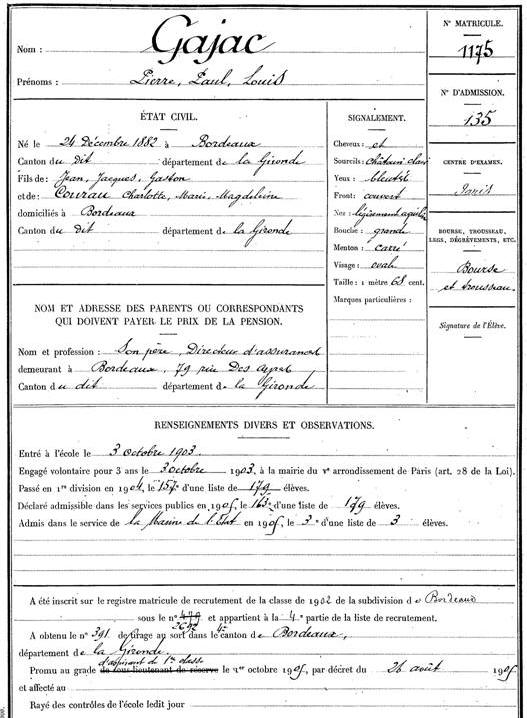 Nom : Gajac
Prénoms : Pierre, Paul, Louis
N° MATRICULE.
1175
N° D'ADMISSION.
135
CENTRE D'EXAMEN.
Paris
BOURSE, TROUSSEAU, LEGS, DÉGRÈVEMENTS, ETC.
Bourse
et trousseau.
Signature de l'Élève.
ÉTAT CIVIL.
Né le 24 Décembre 1882 à Bordeaux
Canton du dit département de la Gironde
Fils de : Jean, Jacques, Gaston
et de : Courau Charlotte, Marie, Magdeleine
domiciliés à Bordeaux
Canton du dit département de la Gironde
SIGNALEMENT.
Cheveux : et
Sourcils : châtain clair
Yeux : bleuté
Front : couvert
Nez : légèrement aquilin
Bouche : grande
Menton : carré
Visage : ovale
Taille : 1 mètre 68 cent.
Marques particulières :
NOM ET ADRESSE DES PARENTS OU CORRESPONDANTS
QUI DOIVENT PAYER LE PRIX DE LA PENSION.
Nom et profession : Son père, Directeur d'assurances
demeurant à Bordeaux, 79 rue Des
Canton du dit département de la Gironde
RENSEIGNEMENTS DIVERS ET OBSERVATIONS.
Entré à l'école le 3 octobre 1903.
Engagé volontaire pour 3 ans le 3 octobre 1903, à la mairie du Vᵉ arrondissement de Paris (art. 28 de la Loi).
Passé en 1ʳᵉ division en 1904, le 157ᵉ d'une liste de 179 élèves.
Déclaré admissible dans les services publics en 1905, le 163ᵉ d'une liste de 179 élèves.
Admis dans le service de la Marine de l'Etat en 1905, le 3ᵉ d'une liste de 3 élèves.
A été inscrit sur le registre matricule de recrutement de la classe de 1902 de la subdivision de Bordeaux
sous le n° 479 et appartient à la 4ᵉ partie de la liste de recrutement.
A obtenu le n° 391 de tirage au sort dans le canton de Bordeaux,
département de la Gironde
d'aspirant de 1ʳᵉ classe
Promu au grade de sous-lieutenant de réserve le 1ᵉʳ octobre 1905, par décret du 26 août 1905
et affecté au
Rayé des contrôles de l'école ledit jour